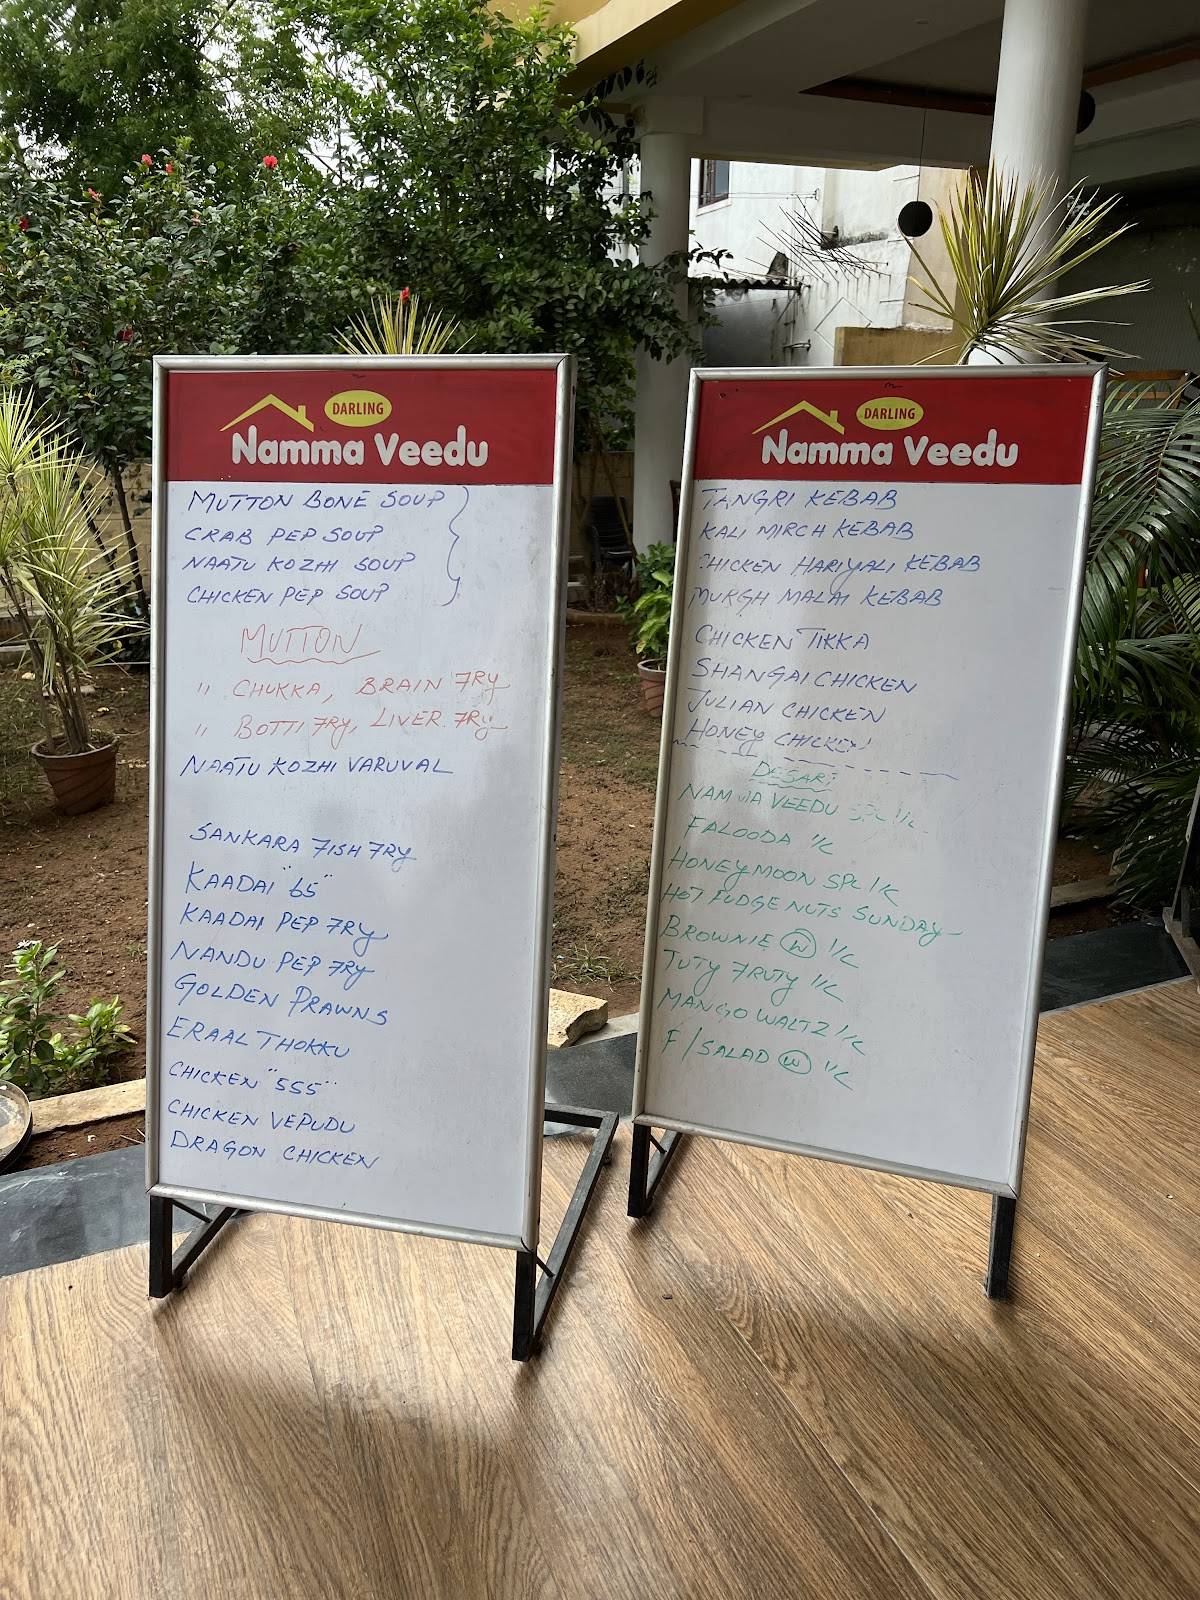 DARLING
Namma Veedu
MUTTON BONE SOUP
CRAB PEP SOUP
NAATU KOZHI SOUP
CHICKEN PEP SOUP
MUTTON
" CHUKKA, BRAIN FRY
" BOTTI FRY, LIVER FRY
NAATU KOZHI VARUVAL
SANKARA FISH FRY
KAADAI "65"
KAADAI PEP FRY
NANDU PEP FRY
GOLDEN PRAWNS
ERAAL THOKKU
CHICKEN "555"
CHICKEN VEPUDU
DRAGON CHICKEN
DARLING
Namma Veedu
TANGRI KEBAB
KALI MIRCH KEBAB
CHICKEN HARIYALI KEBAB
MURGH MALAI KEBAB
CHICKEN TIKKA
SHANGAI CHICKEN
JULIAN CHICKEN
HONEY CHICKEN
DESART
VEEDU SPL I/C
FALOODA I/C
HONEYMOON SPL I/C
HOT FUDGE NUTS SUNDAY
BROWNIE W I/C
TUTY FRUTY I/C
MANGO WALTZ I/C
F/SALAD W I/C